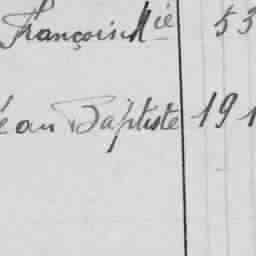 François Mie 53
éan Baptiste 191